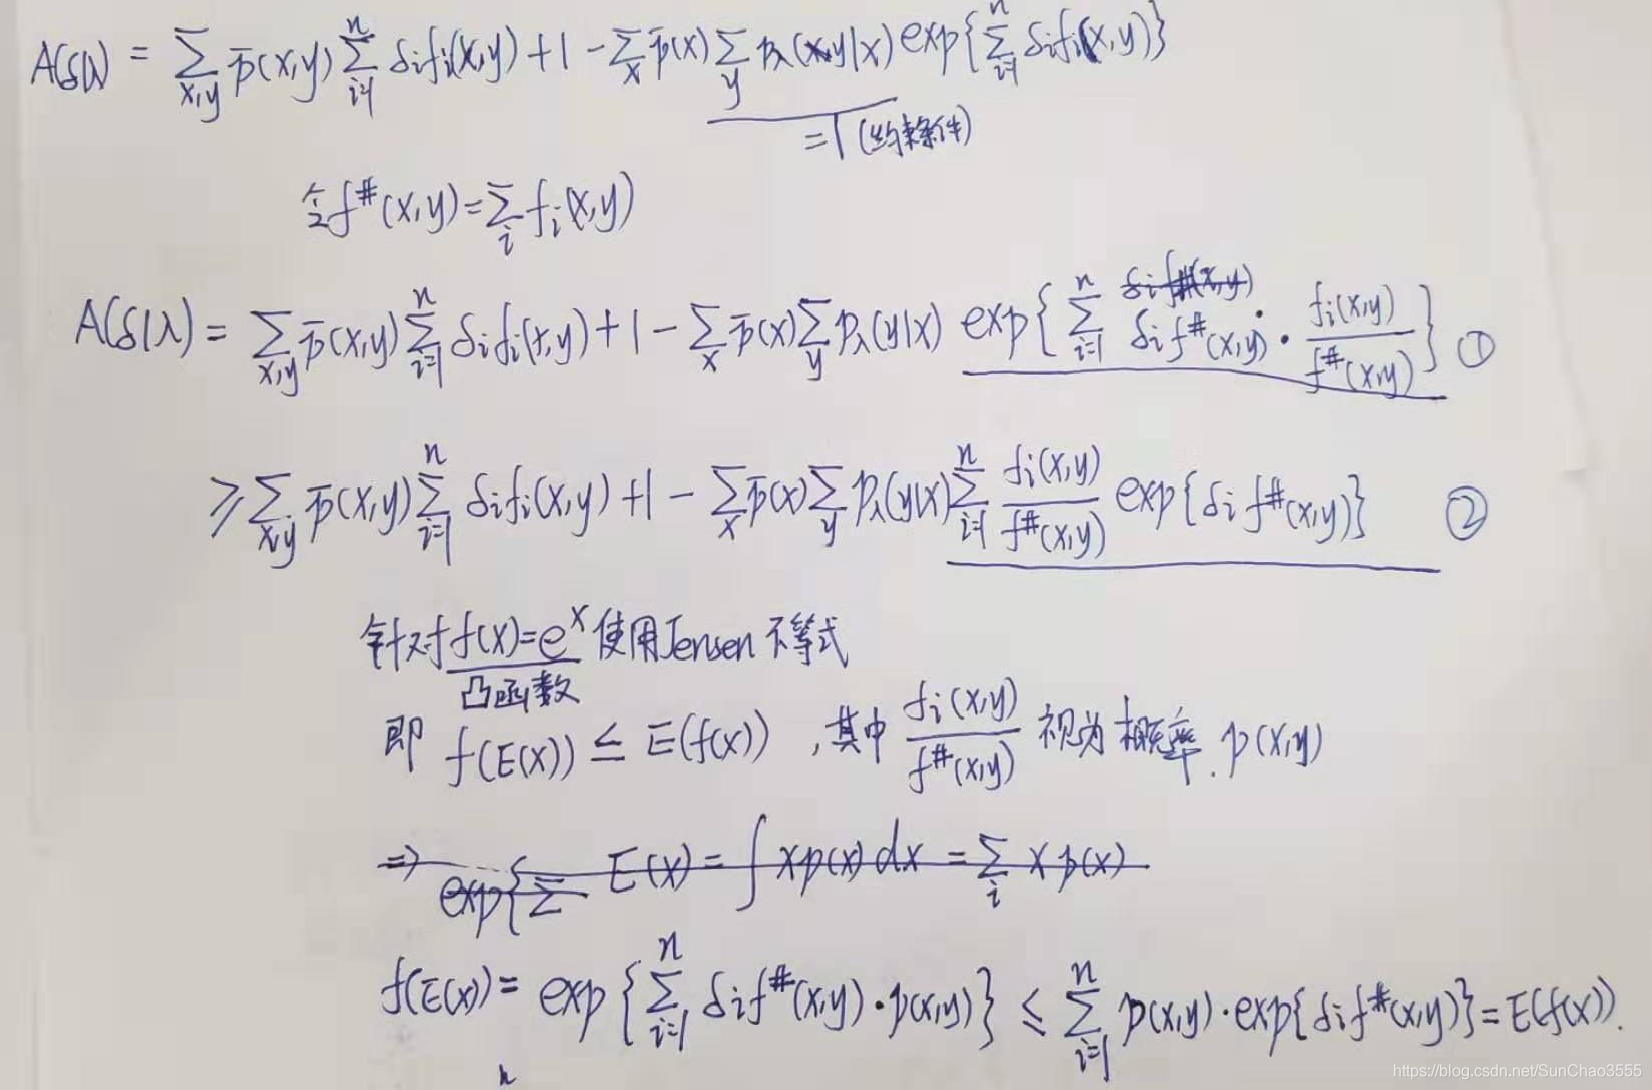 A(δ|λ) = ∑_{x,y} p̄(x,y) ∑_{i=1}^{n} δifi(x,y) + 1 - ∑_x p̄(x) ∑_y pλ(y|x) exp{∑_{i=1}^{n} δifi(x,y)}
=1 (约束条件)
令f^#(x,y) = ∑_i fi(x,y)
A(δ|λ) = ∑_{x,y} p̄(x,y) ∑_{i=1}^{n} δifi(x,y) + 1 - ∑_x p̄(x) ∑_y pλ(y|x) exp{∑_{i=1}^{n} δif^#(x,y) · fi(x,y)/f^#(x,y)} ①
≥ ∑_{x,y} p̄(x,y) ∑_{i=1}^{n} δifi(x,y) + 1 - ∑_x p̄(x) ∑_y pλ(y|x) ∑_{i=1}^{n} fi(x,y)/f^#(x,y) exp{δif^#(x,y)} ②
针对f(x)=e^x使用Jensen不等式
凸函数
即 f(E(x)) ≤ E(f(x)) , 其中 fi(x,y)/f^#(x,y) 视为概率. p(x,y)
⇒ exp{∑ E(x) = ∫xp(x)dx = ∑_i x p(x)
f(E(x)) = exp{∑_{i=1}^{n} δif^#(x,y)·p(x,y)} ≤ ∑_{i=1}^{n} p(x,y)·exp{δif^#(x,y)} = E(f(x)).
https://blog.csdn.net/SunChao3555